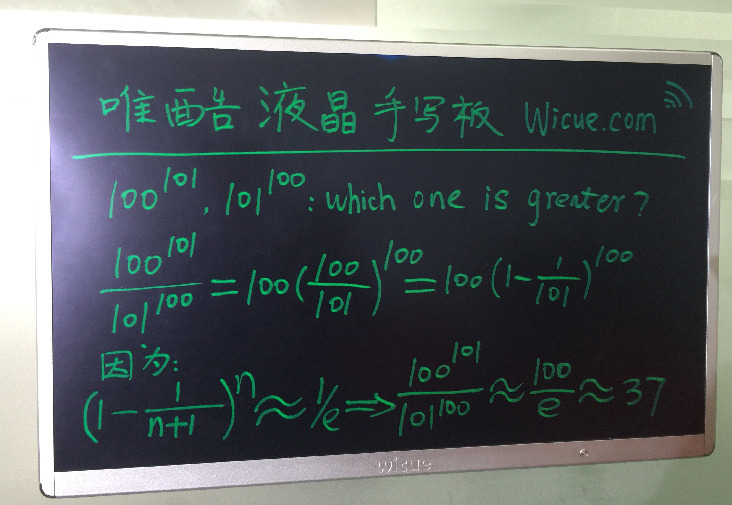 唯酷液晶手写板 Wicue.com
100^101, 101^100: which one is greater?
100^101/101^100 = 100(100/101)^100 = 100(1-1/101)^100
因为:
(1-1/(n+1))^n ≈ 1/e ⇒ 100^101/101^100 ≈ 100/e ≈ 37
wicue